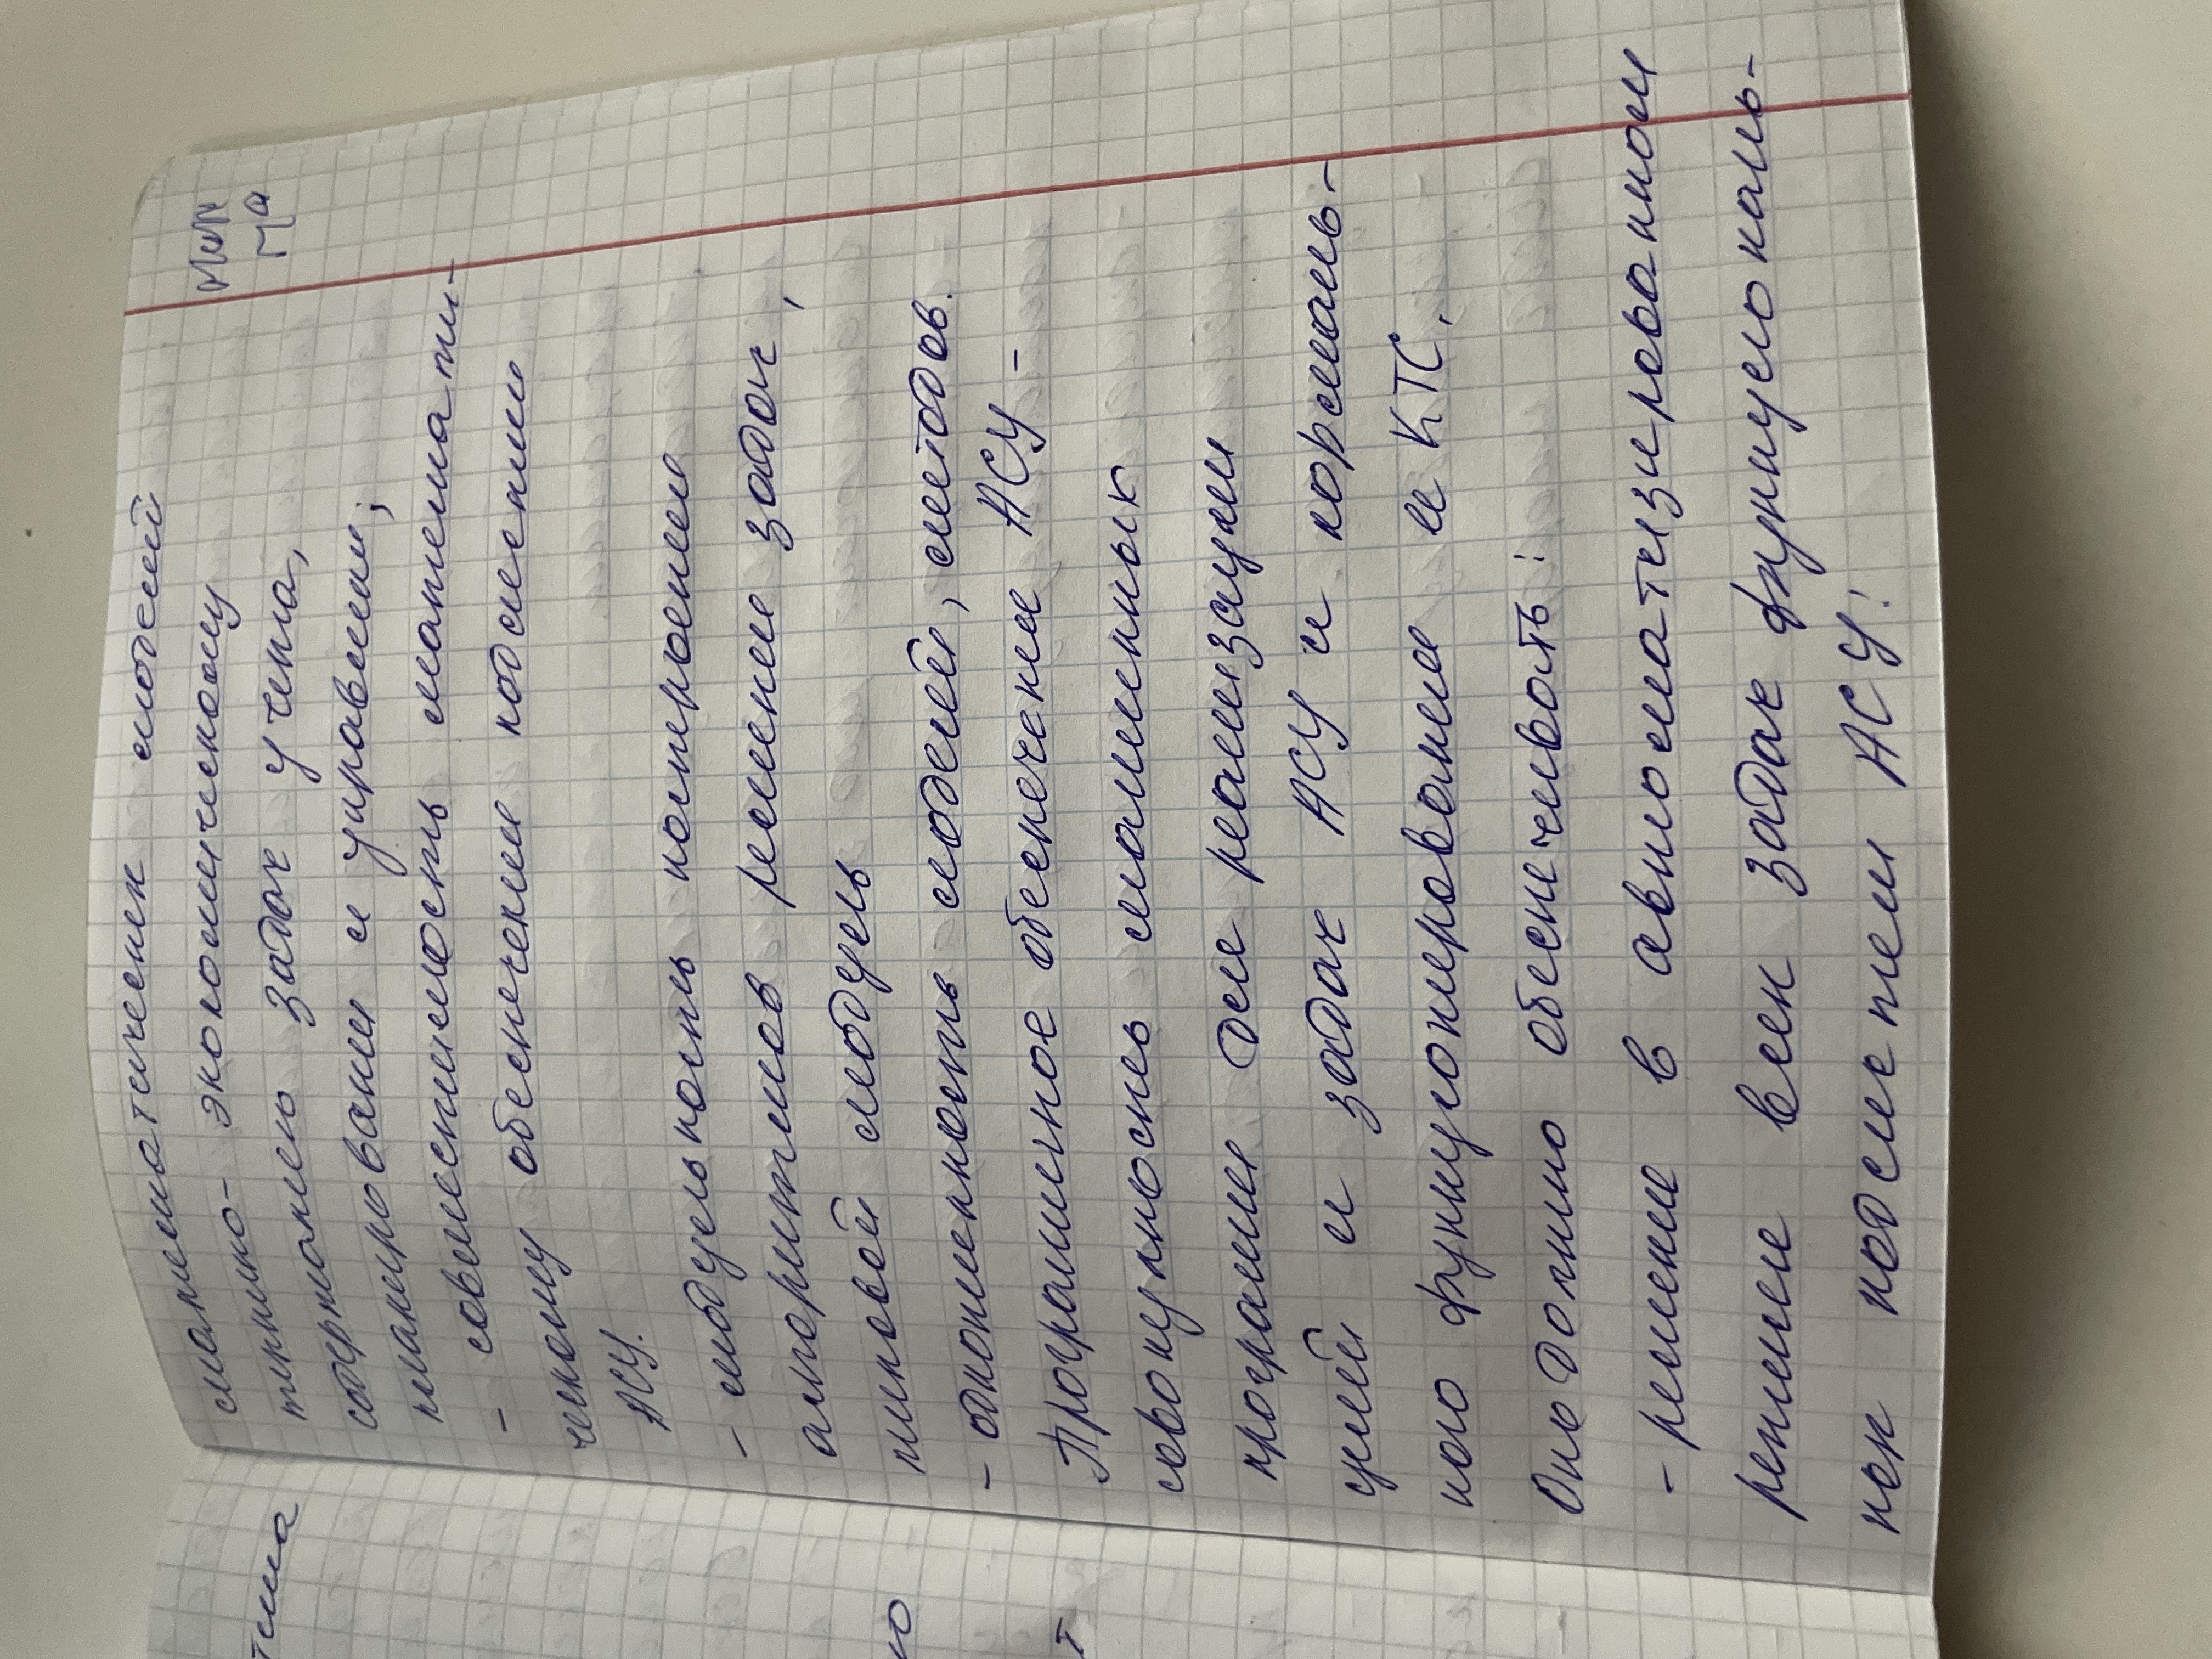 математических моделей
технико-экономическому
содержанию задач учета,
планировании и управлении;
- совместимость математи-
ческому обеспечении подсистем
АСУ.
- модульность построения
алгоритмов решение задач,
типовой модуль
- однотипность моделей, методов.
Программное обеспечение АСУ -
совокупность машинных
программ для реализации
целей и задач АСУ и нормаль-
ного функционирования и КТС.
Оно должно обеспечивать:
- решение в автоматизированном
режиме всех задач функциональ-
ных подсистем АСУ;
тема
ю
т